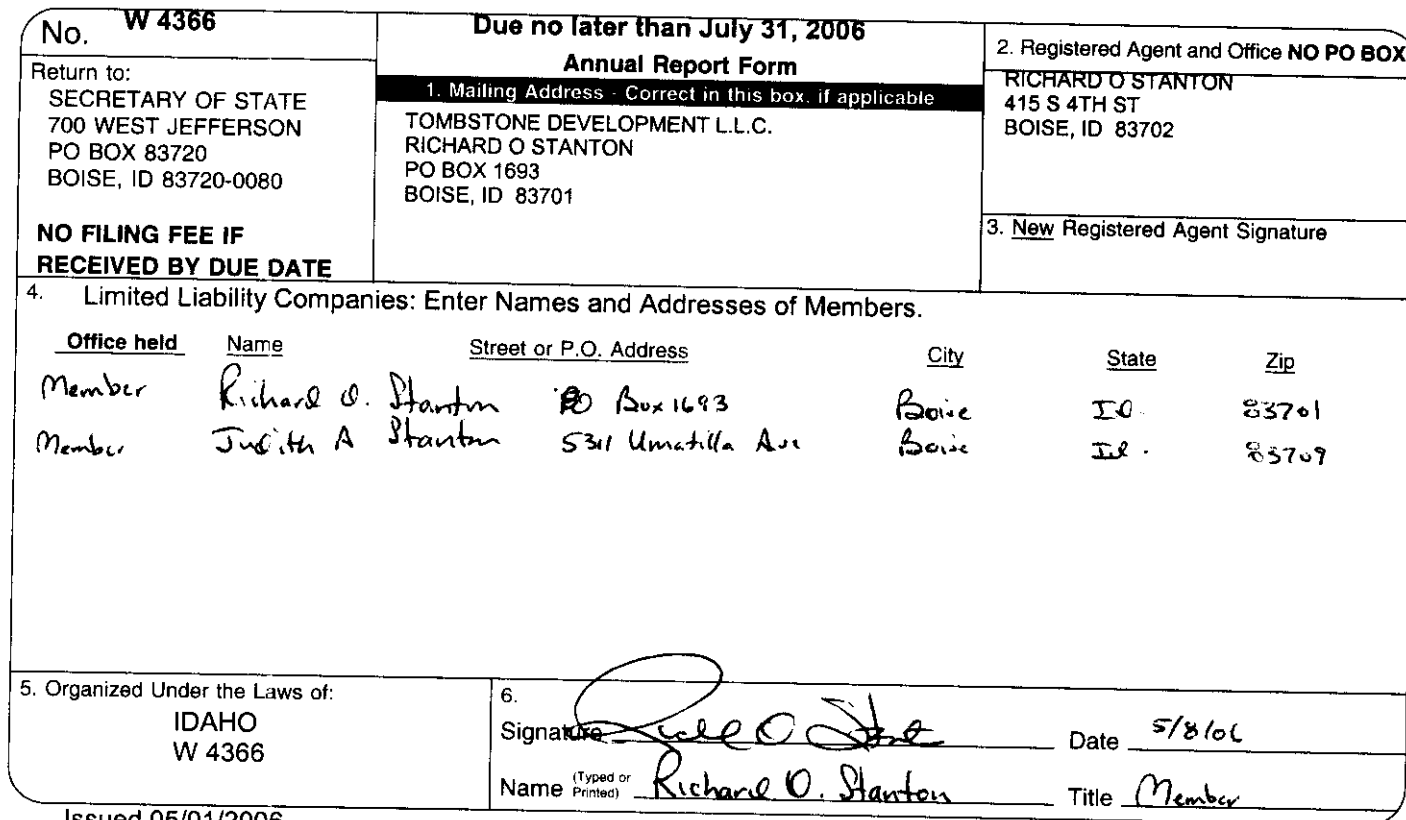 No. W 4366
Return to:
SECRETARY OF STATE
700 WEST JEFFERSON
PO BOX 83720
BOISE, ID 83720-0080
NO FILING FEE IF
RECEIVED BY DUE DATE
Due no later than July 31, 2006
Annual Report Form
1. Mailing Address - Correct in this box, if applicable
TOMBSTONE DEVELOPMENT L.L.C.
RICHARD O STANTON
PO BOX 1693
BOISE, ID 83701
2. Registered Agent and Office NO PO BOX
RICHARD O STANTON
415 S 4TH ST
BOISE, ID 83702
3. New Registered Agent Signature
4. Limited Liability Companies: Enter Names and Addresses of Members.
Office held Name Street or P.O. Address City State Zip
Member Richard O. Stanton PO Box 1693 Boise Id. 83701
Member Judith A Stanton 5311 Umatilla Ave Boise Id. 83709
5. Organized Under the Laws of:
IDAHO
W 4366
6.
Signature Date 5/8/06
Name (Typed or Printed) Richard O. Stanton Title Member
Issued 05/01/2006